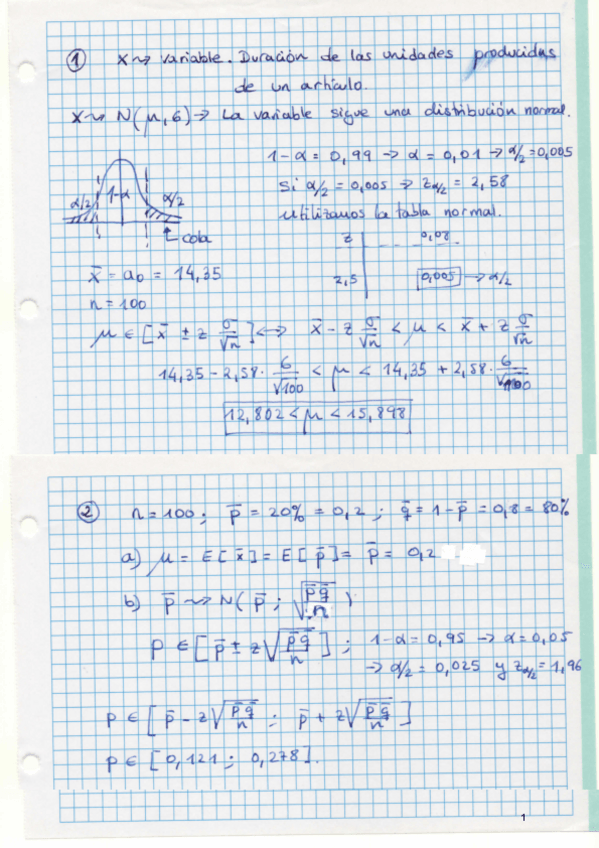 ① X ⇝ variable. Duración de las unidades producidas
de un artículo.
X ⇝ N(μ, 6) → La variable sigue una distribución normal.
1-α = 0,99 → α = 0,01 → α/2 = 0,005
Si α/2 = 0,005 → z α/2 = 2,58
Utilizamos la tabla normal.
α/2 1-α α/2
cola
z 0,08
2,5 0,005 → α/2
x̄ = a₀ = 14,35
n = 100
μ ∈ [x̄ ± z σ/√n] ⟺ x̄ - z σ/√n < μ < x̄ + z σ/√n
14,35 - 2,58 · 6/√100 < μ < 14,35 + 2,58 · 6/√100
12,802 < μ < 15,898
② n = 100; p̄ = 20% = 0,2; q̄ = 1-p̄ = 0,8 = 80%
a) μ = E[x̄] = E[p̄] = p̄ = 0,2
b) p̄ ⇝ N(p̄; √(p̄q̄/n))
p ∈ [p̄ ± z√(p̄q̄/n)]; 1-α = 0,95 → α = 0,05
→ α/2 = 0,025 y z α/2 = 1,96
p ∈ [p̄ - z√(p̄q̄/n); p̄ + z√(p̄q̄/n)]
p ∈ [0,121; 0,278].
1